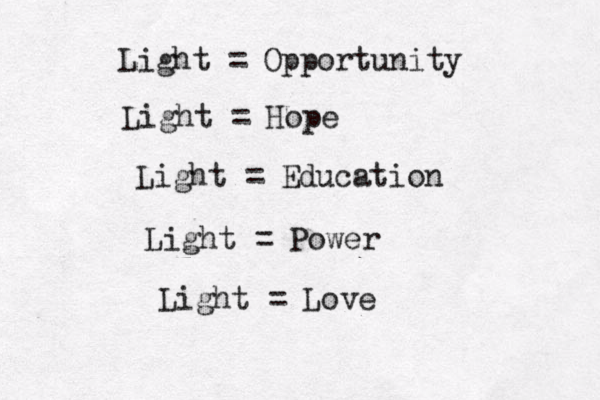 Light = Opportunity
Light = Hope
Light = Education
Light = Power
Light = Love